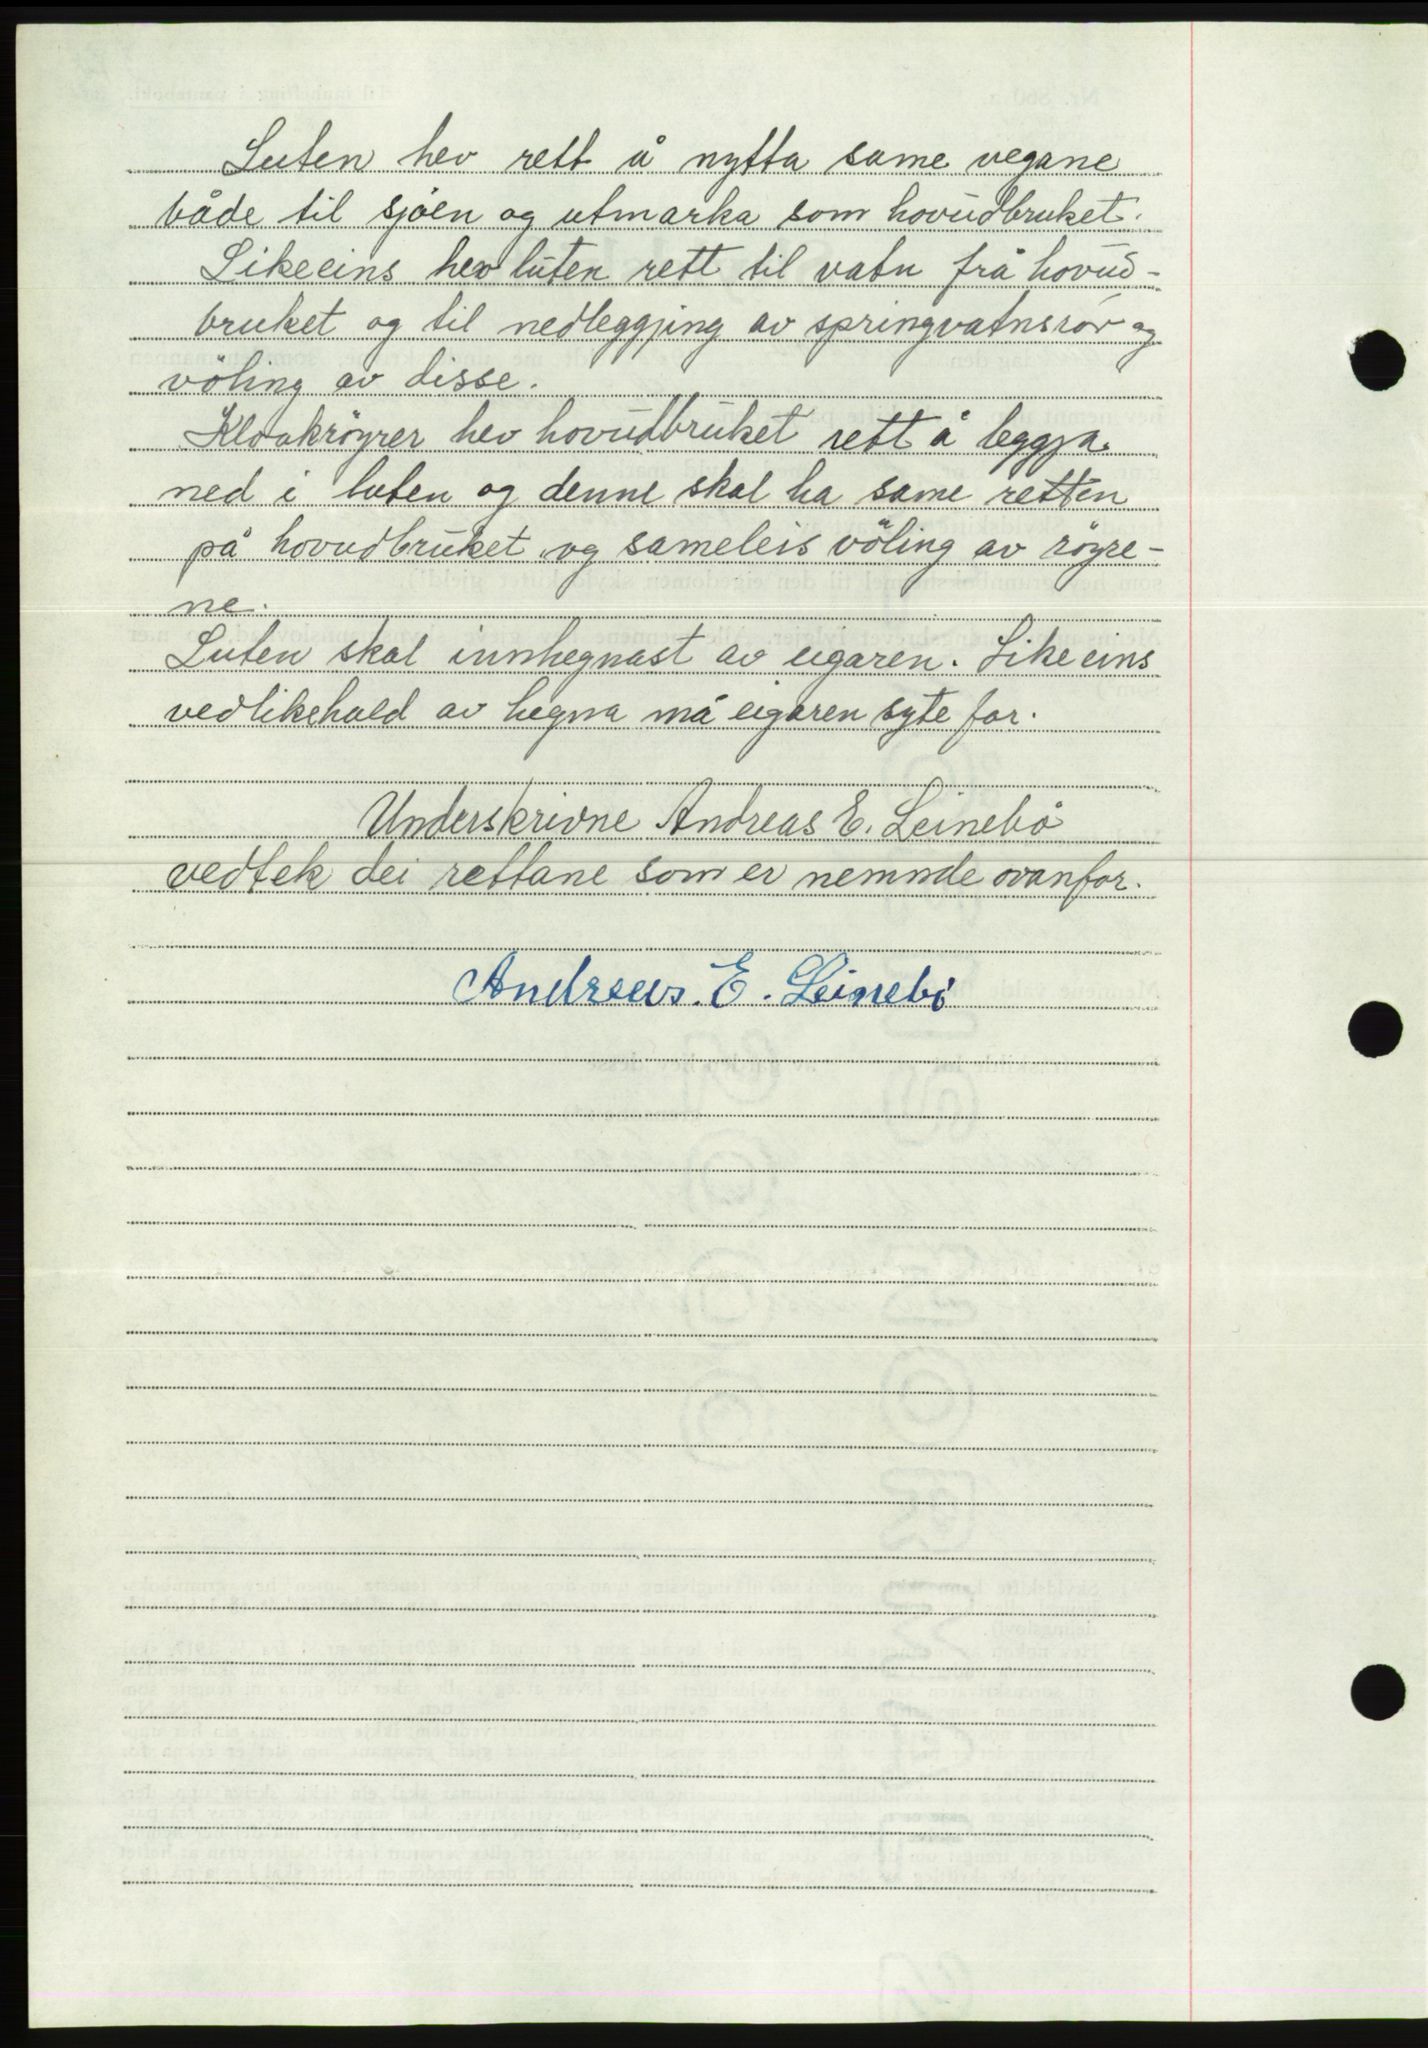 Luten hev rett å nytta same vegane
både til sjøen og utmarka som hovudbruket.
Likeeins hev luten rett til vatn frå hovud-
bruket og til nedleggjing av springvatnsrör og
völing av disse.
Kloakröyrer hev hovudbruket rett å leggja
ned i luten og denne skal ha same retten
på hovudbruket og sameleis völing av röyre-
ne.
Luten skal innhegnast av eigaren. Likeeins
vedlikehald av hegna må eigaren syte for.
Underskrivne Andreas E. Leinebö
vedtek dei rettane som er nemnde ovanfor.
Andreas. E. Leinebö